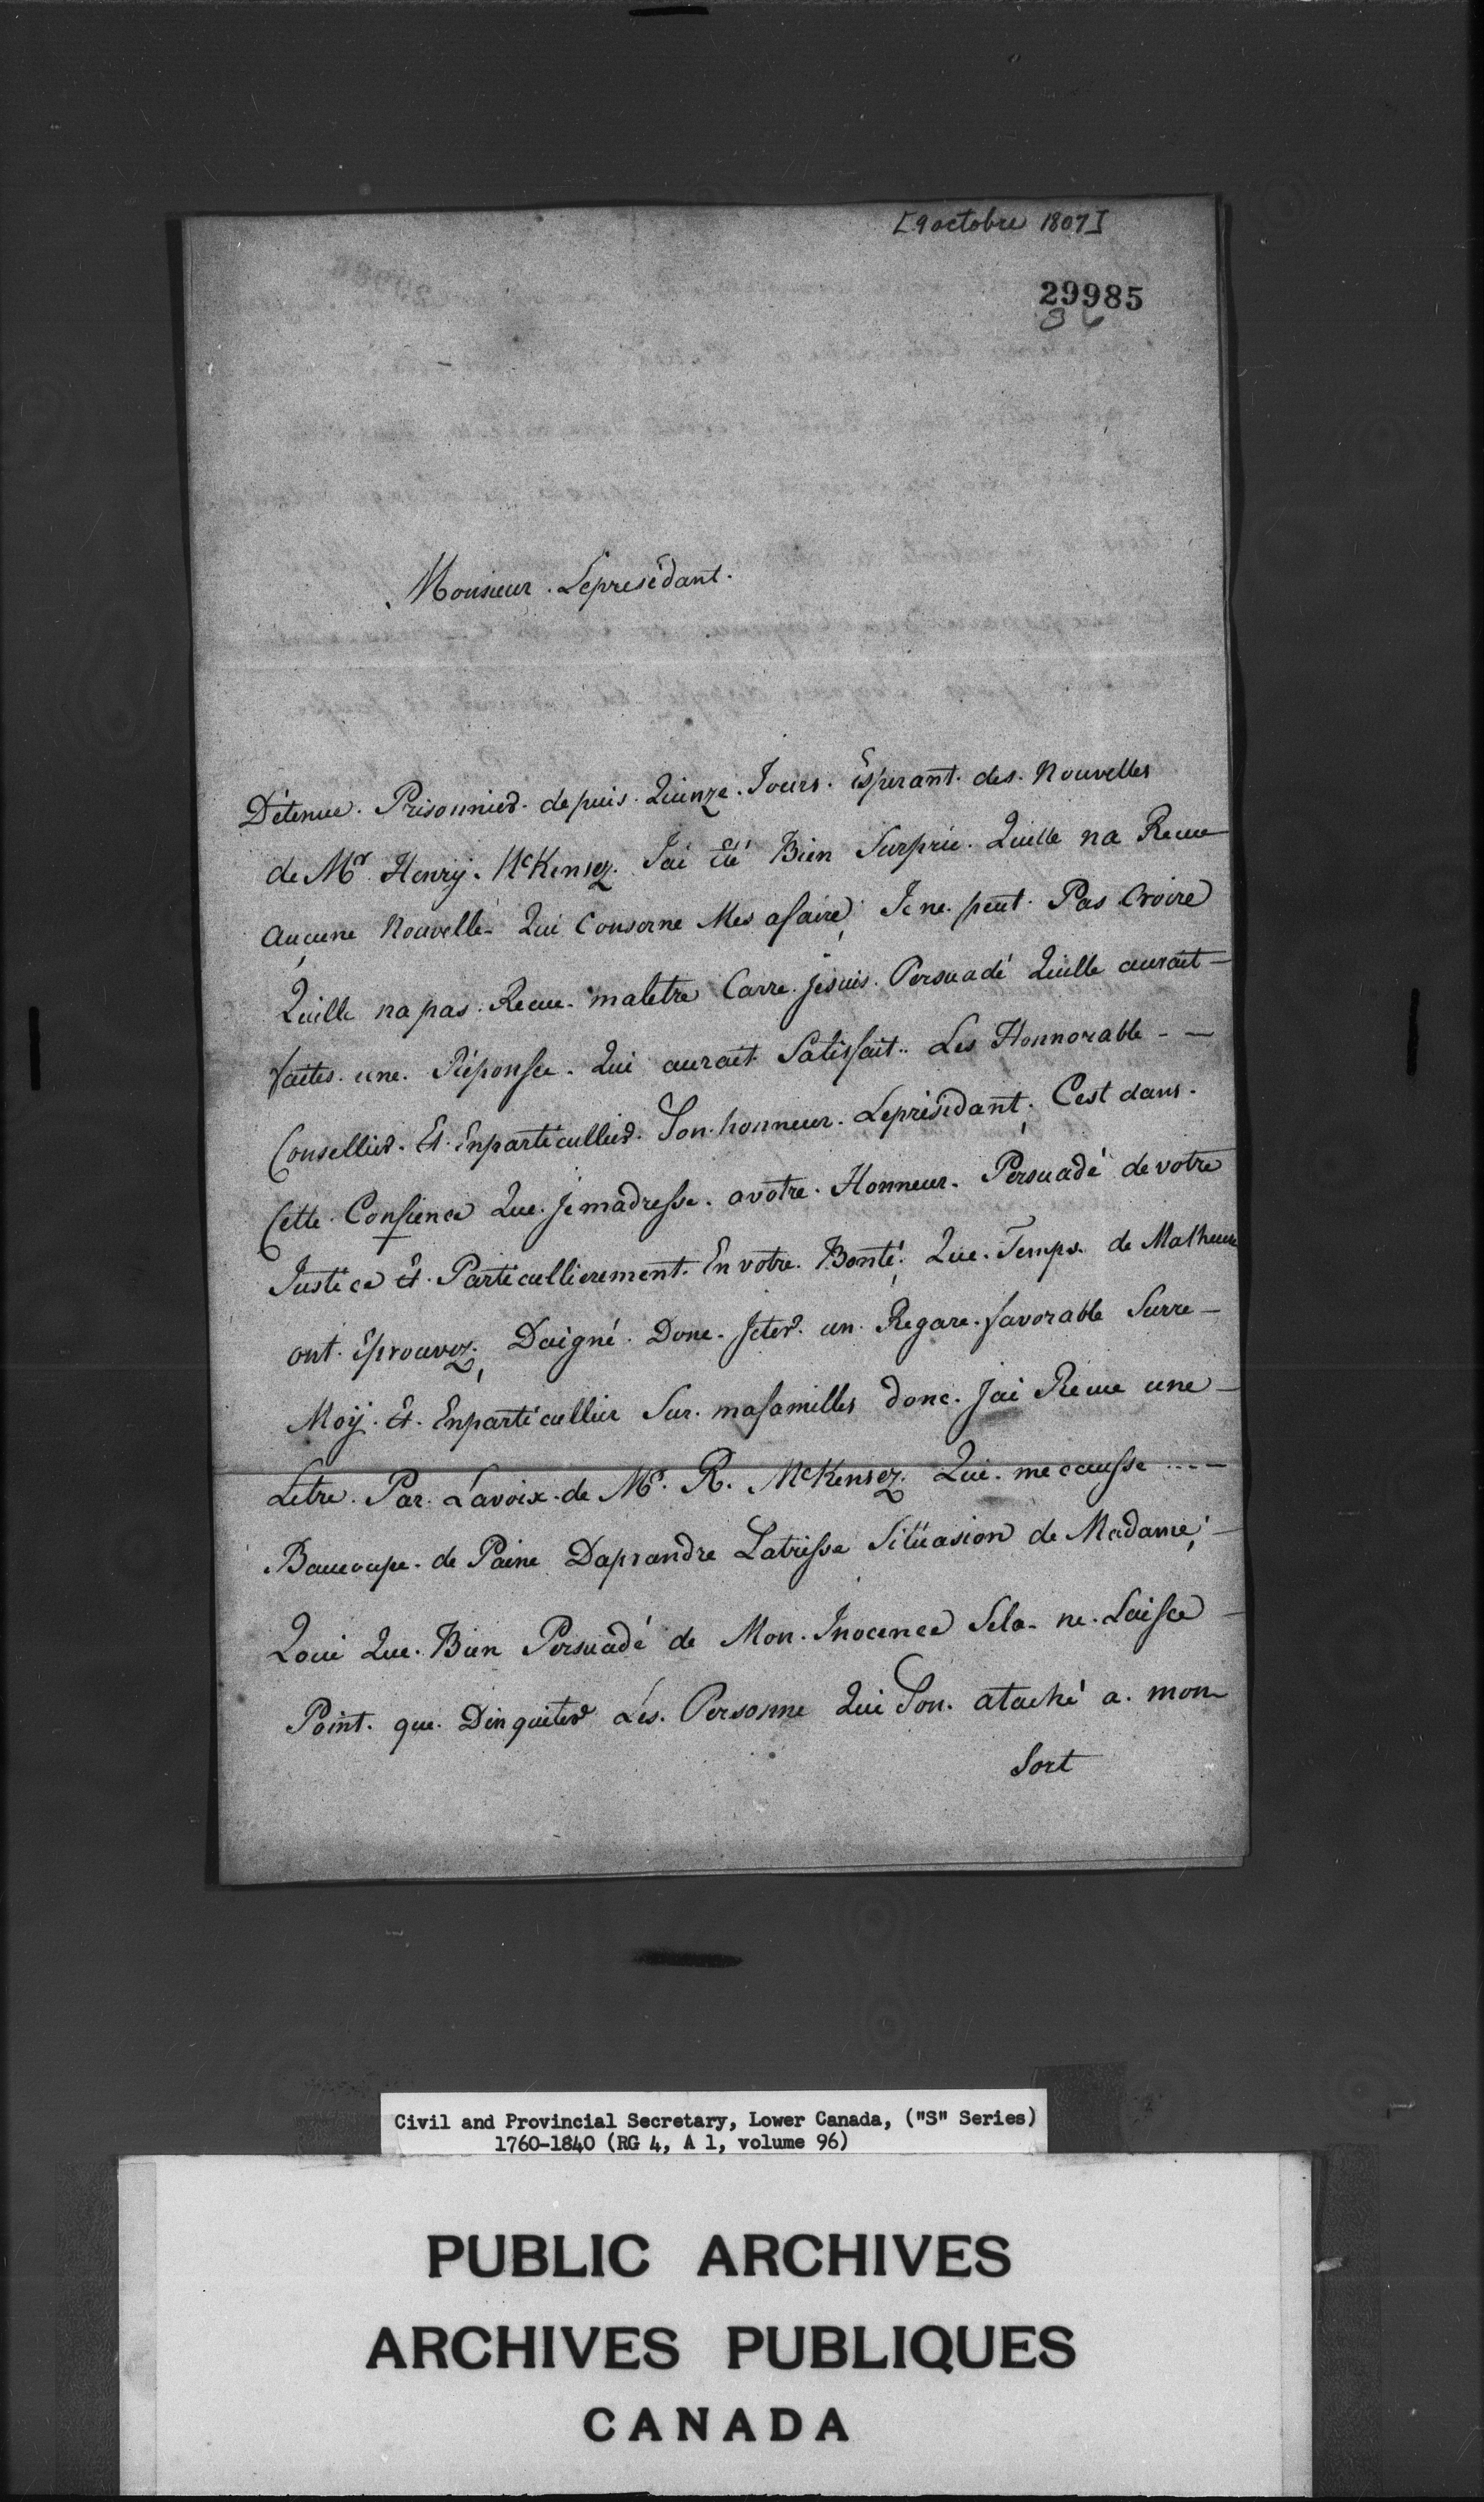 [9 octobre 1807]
29985
86
Monsieur. Lepresédant.
Détenue. Prisonnier. depuis. Quinze. Jours. Esperant. des. Nouvelles
de Mr. Henry. McKensez. Jai Eté Bien Surprie. Quille na Recue
aucune Nouvelle. Qui Conserne Mes afaire; Je ne. peut. Pas Croire
Quille na pas. Recue. maletre Carre. Jesuis. Persuadé Quille aurait -
faites. une. Réponse. Qui aurait Satisfait.. Les Honnorable - -
Consellier. Et. Enparticullier. Son. honneur. Leprésidant; Cest dans.
Cette. Confience Que. Je madresse. avotre. Honneur. Persuadé de votre
Justice Et. Particullierement. En votre. Bonté; Que. Temps. de Malheure
ont. Eprouvez; Daigné. Donc. Jeter. un. Regare. favorable Surre -
Moÿ. Et. Enparticullier Sur. mafamilles donc. Jai Recue une -
Letre. Par. Lavoix. de Mr. R. McKensez. Qui. me causse ... -
Baucoupe. de Paine Daprandre Latrisse Sitüasion de Madame; -
Quoi Que. Bien Persuadé de Mon. Inocence Sela. ne. Laisse -
Point. que. Dinquiter Les. Personne Qui Son. ataché a. mon
Sort
Civil and Provincial Secretary, Lower Canada, ("S" Series)
1760-1840 (RG 4, A 1, volume 96)
PUBLIC ARCHIVES
ARCHIVES PUBLIQUES
CANADA